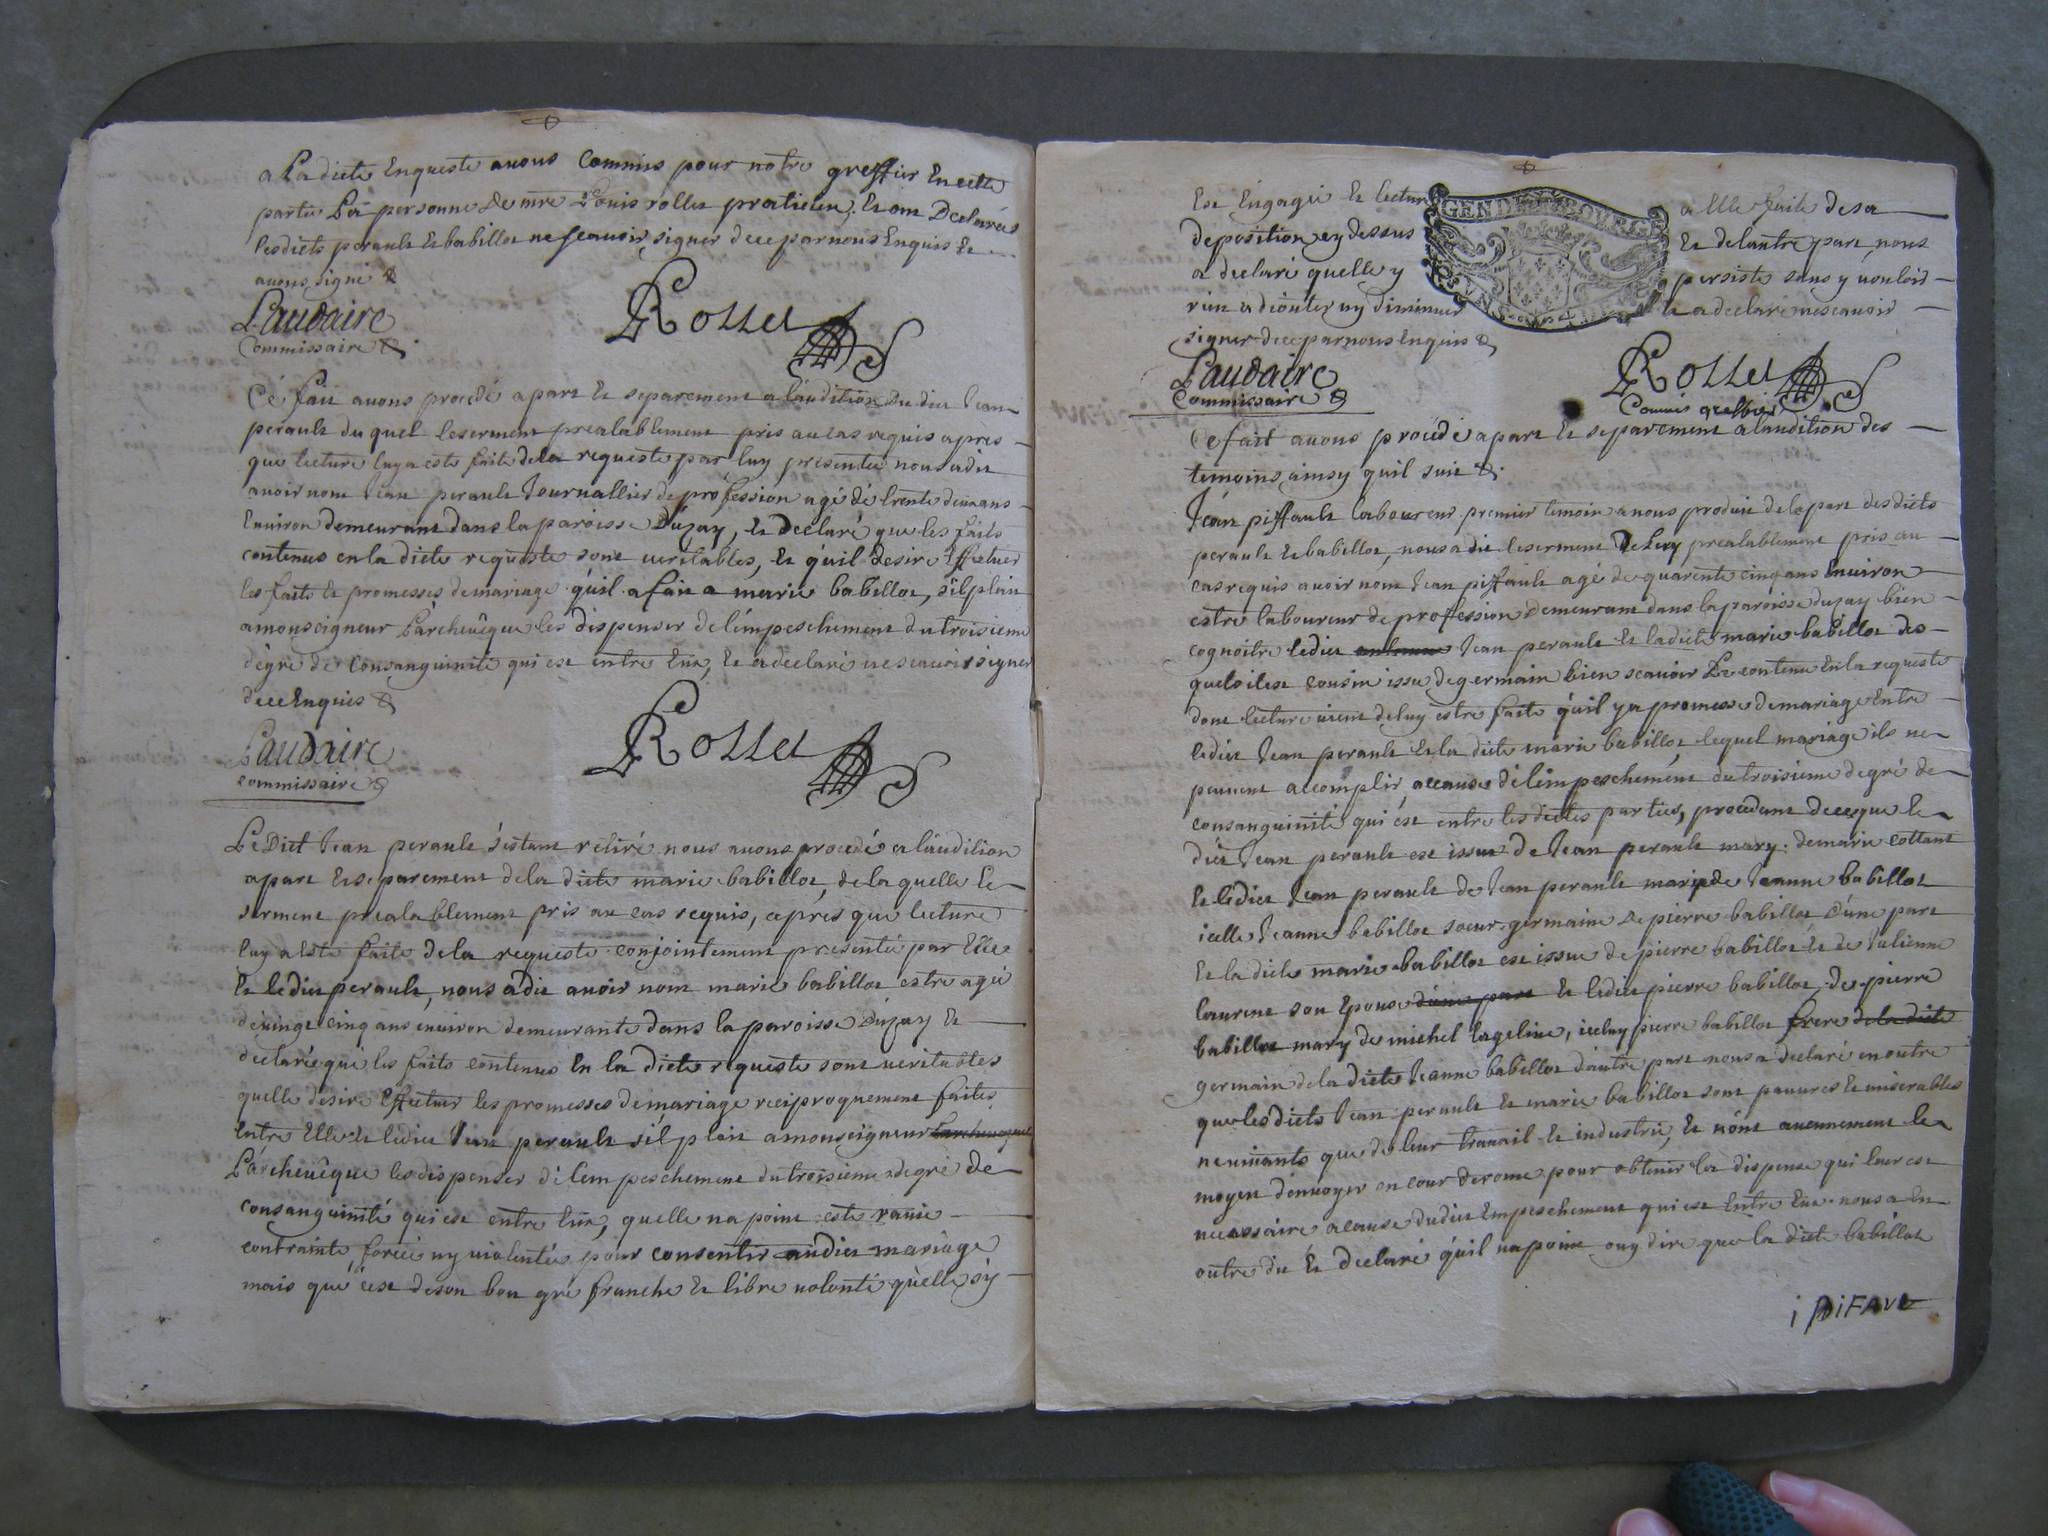 a La dicte Enqueste avons Commis pour notre greffier En cette
partie La personne de mre Louis rollet praticien. Et ont Declarées
lesdicts perault et babillot ne scavoir signer de ce par nous Enquis et
avons signé &
Laudaire
Commissaire &
Rollet
Cé fait avons procedé a part et separement a láudition du dict Jean
perault du quel le serment prealablement pris au cas requis apres
que lecture luy a esté faite de la requeste par luy presentée nous a dit
avoir nom Jean perault Journallier de profession agé dé trente deux ans
Environ demeurant dans la paroisse Dúzay, et Declaré que les faits
contenus en la dicte requeste sont veritables, et qúil desire Effectuer
les faits et promesses de mariage qúil a fait a marie babillot, sil plait
a monseigneur Lárchevêque les dispenser de lémpeschement du troisieme
dégré de Consanguinité qui est entre Eux, et a declaré ne scavoir signer
de ce Enquis &
Laudaire
commissaire &
Rollet
Le Dict Jean perault séstant retiré nous avons procedé a láudition
a part et separement de la dicte marie babillot, de la quelle le
serment prealablement pris au cas requis, apres que lecture
luy a Esté faite de la requeste conjointement presentée par Elle
Et ledict perault, nous a dit avoir nom marie babillot estre agée
de vingt cinq ans environ demeurante dans la paroisse Dúzay et
declarée que les faits contenus En la dicte requeste sont veritables
quelle desire Effectuer les promesses de mariage reciproquement faites
Entre Elle et ledict Jean perault sil plait a monseigneur larchevequé
Lárchevêque les dispenser dé lem peschement du troisieme degré de
consanguinité qui est entre Eux, quelle na point esté ravie
contrainte, forcée ny violentée pour consentir audict mariage
mais que cést de son bon gré franche et libre volonté qúelle s'y
Est Engagée Et lecture a Elle faite de sa
deposition cy dessus Et de lautre part, nous
a declaré quelle y persiste sans y vouloir
rien adiouter ny diminuer Et a declaré ne scavoir
signer de ce par nous Enquis &
GEND DE BOURGES
Laudaire
Commissaire &
Rollet
Commis greffier
Ce fait avons procédé a part et separement a laudition des
temoins ainsy quil suit &.
Jéan piffault laboureur premier temoin a nous produit de la part desdicts
perault et babillot, nous a dit le serment De Luy prealablement pris au
cas requis avoir nom Jean piffault agé de quarente cinq ans Environ
estre laboureur de profession demeurant dans la paroisse duzay bien
cognoitre ledict Jean perault et la dicte marie babillot des
quels il est cousin issu de germain bien scavoir Le contenu En la requeste
dont lecture vient de luy estre faite qúil y a promesse de mariage Entre
ledict Jean perault et la dicte marie babillot lequel mariage ils ne
peuvent accomplir a cause dé lémpeschement du troisieme degré de
consanguinité qui ést entre lesdictes parties, procedant de ce que le
dict Jean perault est issu de Jean perault mary de marie cottant
Et ledict Jean perault de Jean perault mary de Jeanne babillot
icelle Jeanne babillot soeur germaine de pierre babillot d'úne part
Et la dicte marie babillot est issue de pierre babillot et de Julienne
laurent son Epouse dúne part et ledict pierre babillot de pierre
babillot mary de michel lageline, iceluy pierre babillot frere de la dicte
germain de la dicte Jeanne babillot dáutre part nous a declaré en outre
que lesdicts Jean perault et marie babillot sont pauvres et miserables
ne vivants que de leur travail et industrie, et nónt aucunement le
moyen dénvoyer en cour de rome pour obtenir la dispense qui leur est
necessaire a cause dudict Empeschement qui est Entre Eux nous a En
outre dit Et declaré qúil na point ouy dire que la dicte babillot
i piFAVLt